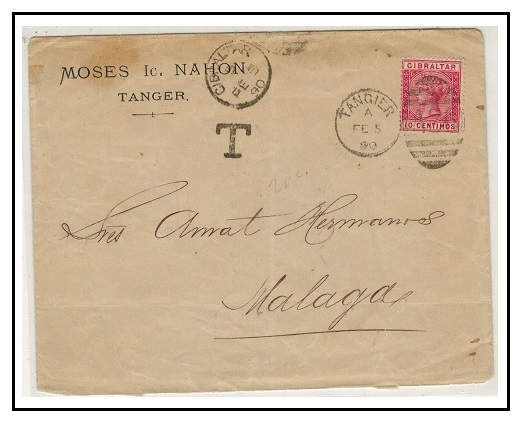 MOSES Ic. NAHON
TANGER.
GIBRALTAR
90
T
TANGIER
A
FE 5
90
GIBRALTAR
10 CENTIMOS
20 c.
Sres Amat Hermanos
Malaga